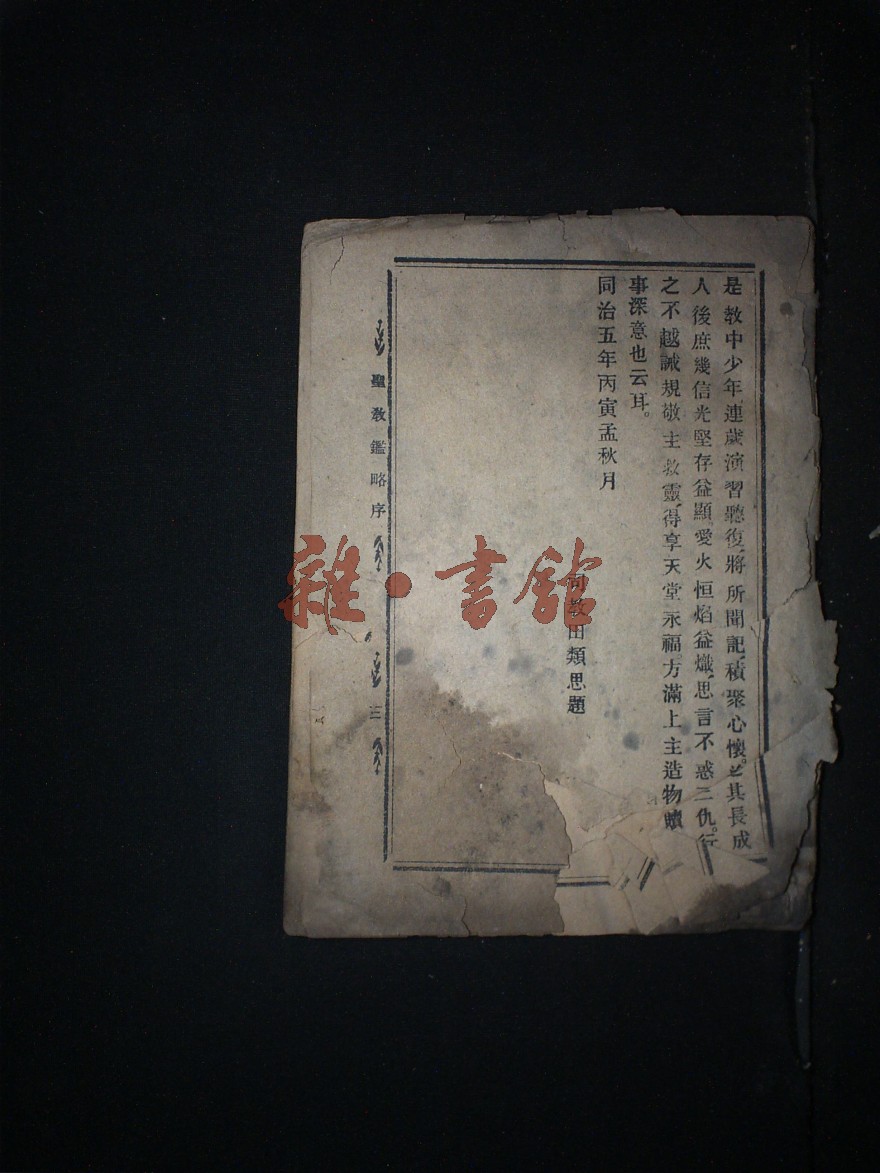 是教中少年、連歲演習聽復、將所聞記、積聚心懷。其長成
人後庶幾信光堅存益顯、愛火恒焰益熾、思言不惑三仇。行
之不越誡規敬主救靈、得享天堂永福、方滿上主造物贖
事深意也云耳。
同治五年丙寅孟秋月
司教田類思題
聖教鑑略序
三
雜·書館